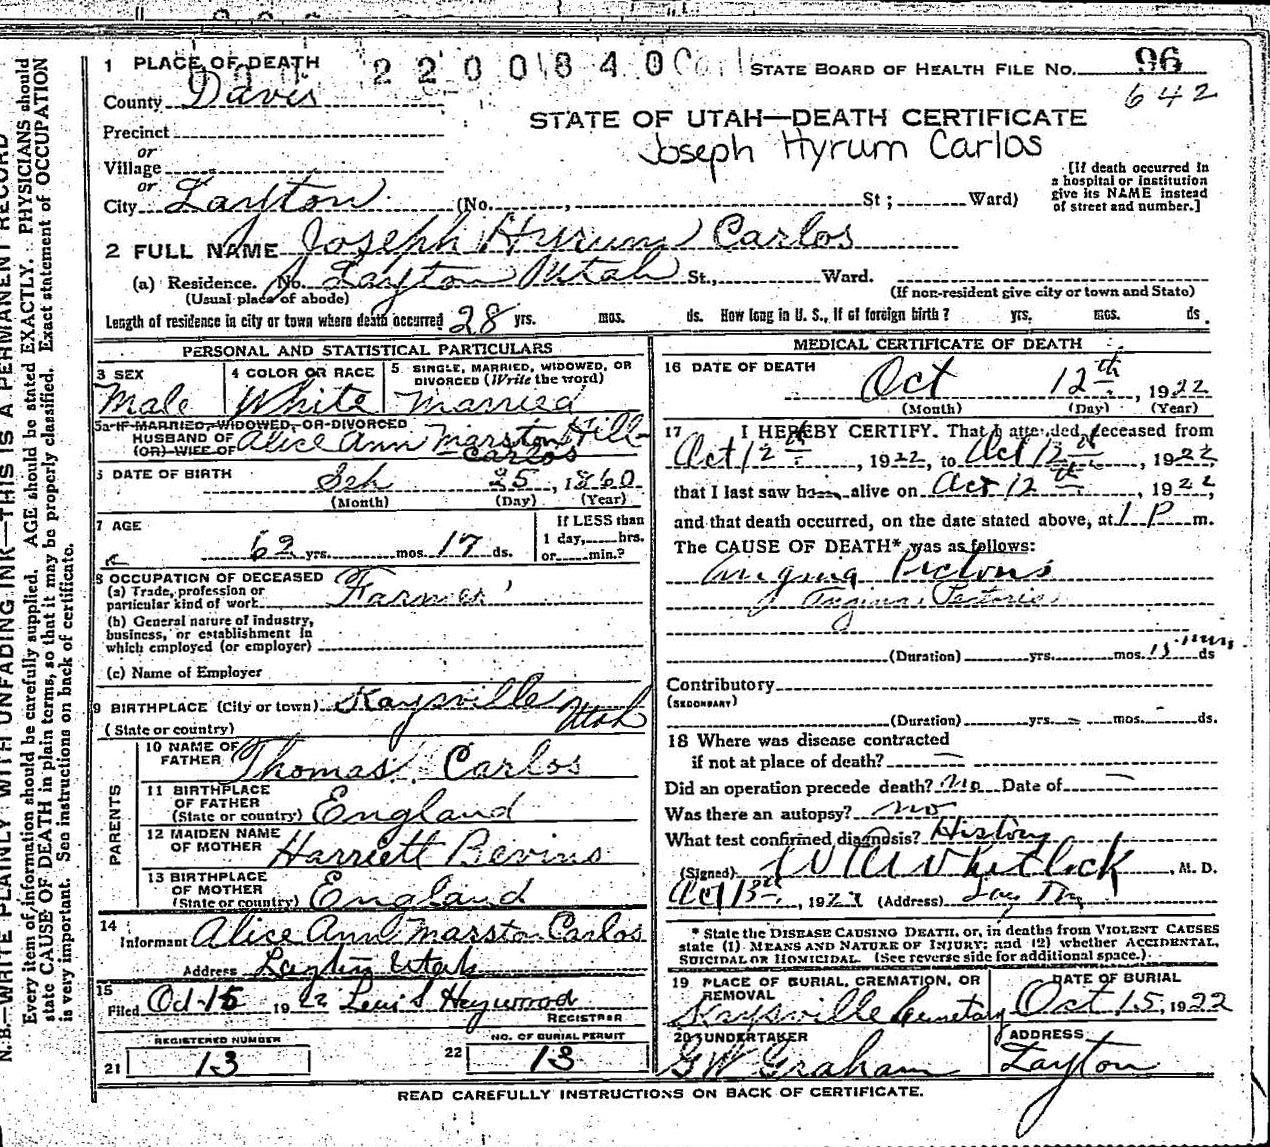 1 PLACE OF DEATH
2 2 0 0 8 4 0
STATE BOARD OF HEALTH FILE No. 96
642
County Davis
STATE OF UTAH—DEATH CERTIFICATE
Joseph Hyrum Carlos
Precinct
or
Village
or
City Layton (No. , St ; Ward)
[If death occurred in
a hospital or institution
give its NAME instead
of street and number.]
2 FULL NAME Joseph Hyrum Carlos
(a) Residence. No. Layton Utah St., Ward.
(Usual place of abode)
(If non-resident give city or town and State)
Length of residence in city or town where death occurred 28 yrs. mos. ds. How long in U. S., if of foreign birth? yrs. mos. ds.
PERSONAL AND STATISTICAL PARTICULARS
3 SEX
Male
4 COLOR OR RACE
White
5 SINGLE, MARRIED, WIDOWED, OR
DIVORCED (Write the word)
Married
5a IF MARRIED, WIDOWED, OR DIVORCED
HUSBAND OF Alice Ann Marston Hill
(OR) WIFE OF Carlos
DATE OF BIRTH 25, 1860
(Month) (Day) (Year)
7 AGE
62 yrs. mos. 17 ds.
If LESS than
1 day, hrs.
or min.?
8 OCCUPATION OF DECEASED
(a) Trade, profession or
particular kind of work Farmer
(b) General nature of industry,
business, or establishment in
which employed (or employer)
(c) Name of Employer
9 BIRTHPLACE (City or town) Kaysville
(State or country) Utah
PARENTS
10 NAME OF
FATHER Thomas Carlos
11 BIRTHPLACE
OF FATHER
(State or country) England
12 MAIDEN NAME
OF MOTHER Harriett Bevins
13 BIRTHPLACE
OF MOTHER
(State or country) England
14
Informant Alice Ann Marston Carlos
Address Layton Utah
15
Filed Oct 15 1922 Lewis S Heywood
REGISTRAR
REGISTERED NUMBER
21 13
NO. OF BURIAL PERMIT
22 13
MEDICAL CERTIFICATE OF DEATH
16 DATE OF DEATH
Oct 12th, 1922
(Month) (Day) (Year)
17 I HEREBY CERTIFY. That I attended deceased from
Oct 12th, 1922, to Oct, 1922
that I last saw h alive on Oct 12th, 1922,
and that death occurred, on the date stated above, at 1 P m.
The CAUSE OF DEATH* was as follows:
Angina Pectoris
Angina Pectoris
(Duration) yrs. mos. 15 ds
Contributory
(SECONDARY)
(Duration) yrs. mos. ds.
18 Where was disease contracted
if not at place of death?
Did an operation precede death? No Date of
Was there an autopsy? no
What test confirmed diagnosis? History
(Signed) Whitlock, M. D.
Oct 13th, 192 (Address) Layton
* State the DISEASE CAUSING DEATH, or, in deaths from VIOLENT CAUSES
state (1) MEANS AND NATURE OF INJURY; and (2) whether ACCIDENTAL,
SUICIDAL OR HOMICIDAL. (See reverse side for additional space.)
19 PLACE OF BURIAL, CREMATION, OR
REMOVAL
Kaysville Cemetary
DATE OF BURIAL
Oct 15, 1922
20 UNDERTAKER
G W Graham
ADDRESS
Layton
READ CAREFULLY INSTRUCTIONS ON BACK OF CERTIFICATE.
N.B.—WRITE PLAINLY WITH UNFADING INK—THIS IS A PERMANENT RECORD
Every item of information should be carefully supplied. AGE should be stated EXACTLY. PHYSICIANS should
state CAUSE OF DEATH in plain terms, so that it may be properly classified. Exact statement of OCCUPATION
is very important. See instructions on back of certificate.